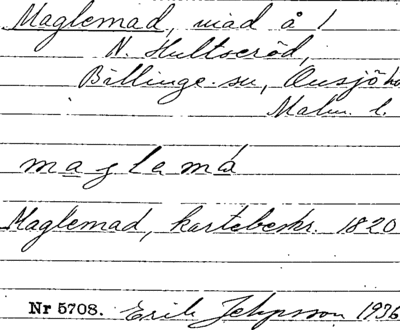 Maglemad, mad å /
N. Hultseröd,
Billinge sn, Onsjö hd.
Malm. l.
maglemá
Maglemad, kartebeskr. 1820
Nr 5708. Erik Jeppsson 1936